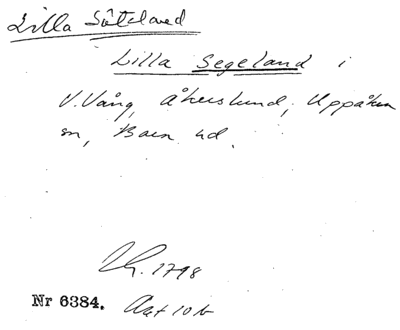 Lilla
Lilla Segeland i
V. Vång, Åkerslund, Uppåkra
sn, Bara hd.
1798
Nr 6384. Akt 10b